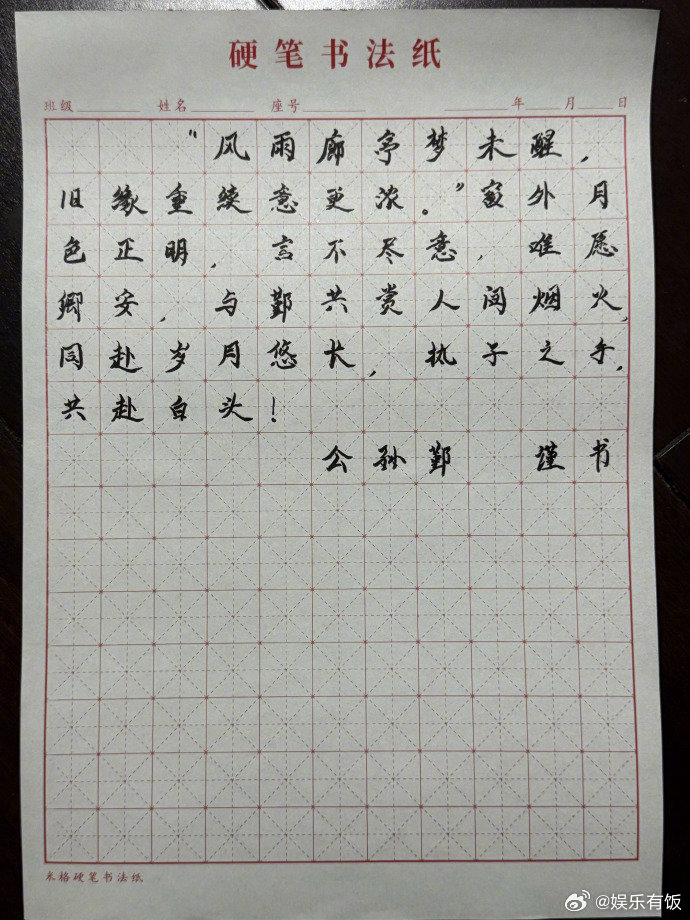 硬笔书法纸
班级 姓名 座号 年 月 日
“风雨廊亭梦未醒，
旧缘重续意更浓。”窗外月
色正明，言不尽意，难愿
卿安，与鄞共赏人间烟火，
同赴岁月悠长，执子之手，
共赴白头！
公孙鄞 谨书
米格硬笔书法纸
@娱乐有饭